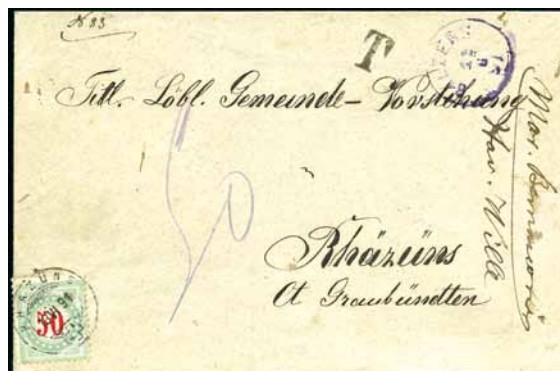 N 83
T
BALZERS
Titl. Löbl. Gemeinde-Vorstehung
50
Rhäzüns
Ct Graubündten
50
Wille